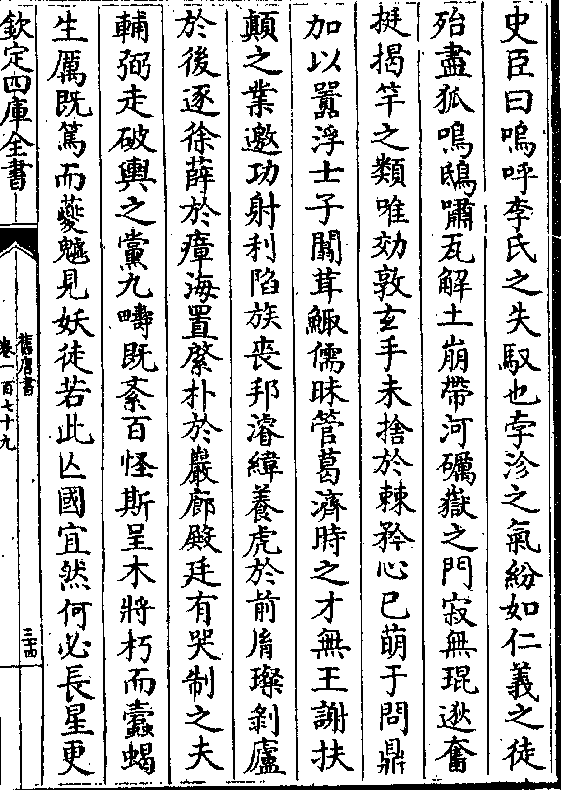 史臣曰嗚呼李氏之失馭也孛沴之氣紛如仁義之徒
殆盡狐鳴鴟嘯瓦解土崩帶河礪嶽之門寂無琨逖奮
挺揭竿之類唯効敦玄手未捨於棘矜心已萌于問鼎
加以囂浮士子闒茸鯫儒昧管葛濟時之才無王謝扶
顛之業邀功射利陷族喪邦濬緯養虎於前胤璨剝廬
於後逐徐薛於瘴海置綮朴於巖廊殿廷有哭制之夫
輔弼走破輿之黨九疇既紊百怪斯呈木將朽而蠹蝎
生厲既篤而夔魖見妖徒若此亾國宜然何必長星更
欽定四庫全書
舊唐書
卷一百七十九
三十四